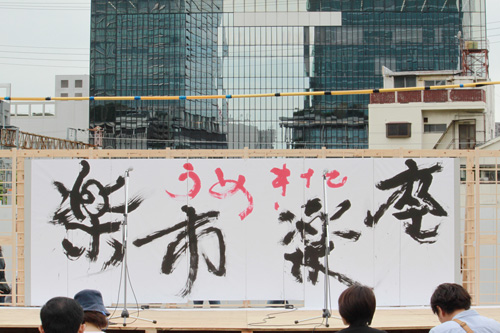 うめきた
楽市楽座